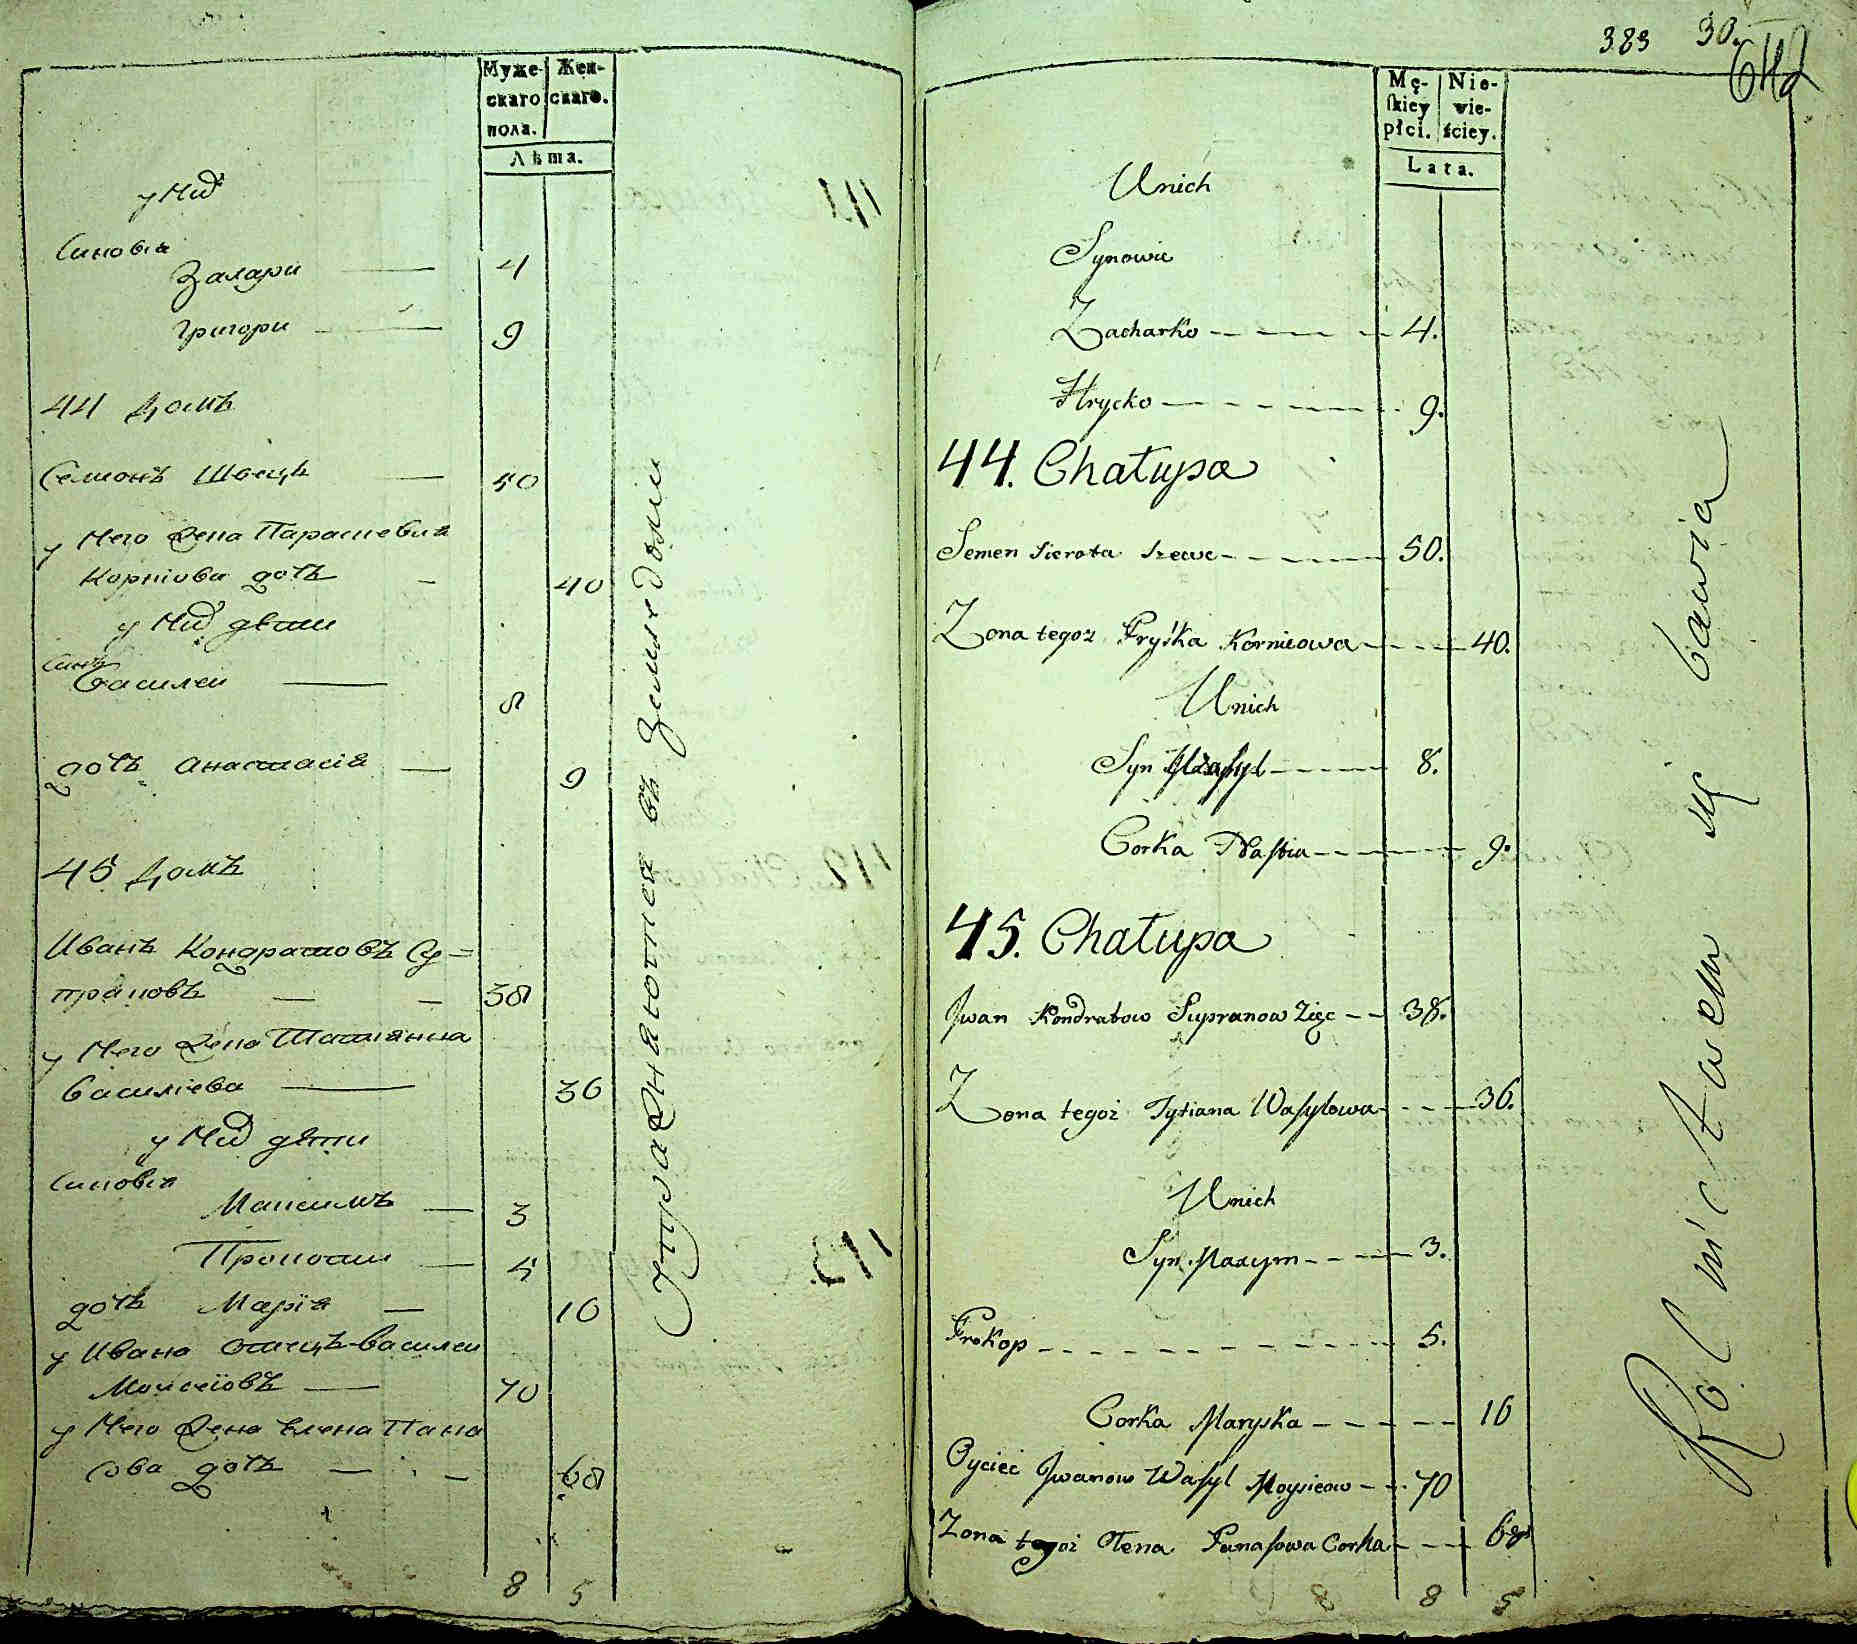 Муже-
скаго
пола.
Жен-
скаго.
Лѣта.
у Них
Синовія
Захари 4
Григори 9
44 Домъ
Семионъ Швецъ 50
у Него Жена Парасшевия
Корніова дочь 40
у Них дѣти
Синъ
Василеи 8
дочь Анастасія 9
45 Домъ
Иванъ Кондратовъ Су=
прановъ 38
у Него Жена Татіанна
Василіева 36
у Них дѣти
Синовія
Максимъ 3
Прокопи 5
дочь Марія 10
у Ивана Отецъ Василеи
Моисеіовъ 70
у Него Жена Елена Пана
сова дочь 68
8 5
Упражняютися въ Земледѣли
383 30.
Mę-
skiey
płci.
Nie-
wie-
ściey.
Lata.
Unich
Synowie
Zacharko 4.
Hrycko 9.
44. Chałupa
Semen Sierota Szewc 50.
Zona tegoż Pryśka Kornieowa 40.
Unich
Syn Wasyl 8.
Corka Nastia 9.
45. Chałupa
Jwan Kondratow Supranow Zięc 38.
Zona tegoż Tytiana Wasylowa 36.
Unich
Syn Maxym 3.
Prokop 5.
Corka Maryska 10
Oyciec Jwanow Wasyl Moysieow 70
Zona tegoż Ołena Panasowa Corka 68
8 5
Rolnictwem się bawią